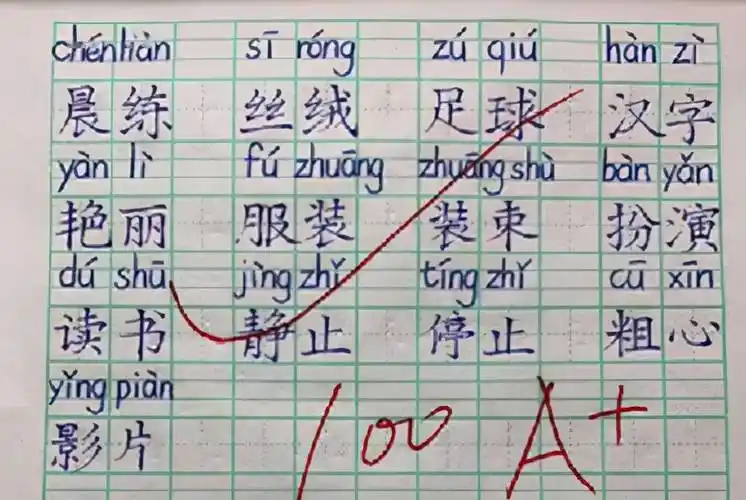 chén liàn sī róng zú qiú hàn zì
晨练 丝绒 足球 汉字
yàn lì fú zhuāng zhuāng shù bàn yǎn
艳丽 服装 装束 扮演
dú shū jìng zhǐ tíng zhǐ cū xīn
读书 静止 停止 粗心
yǐng piàn
影片
100 A+